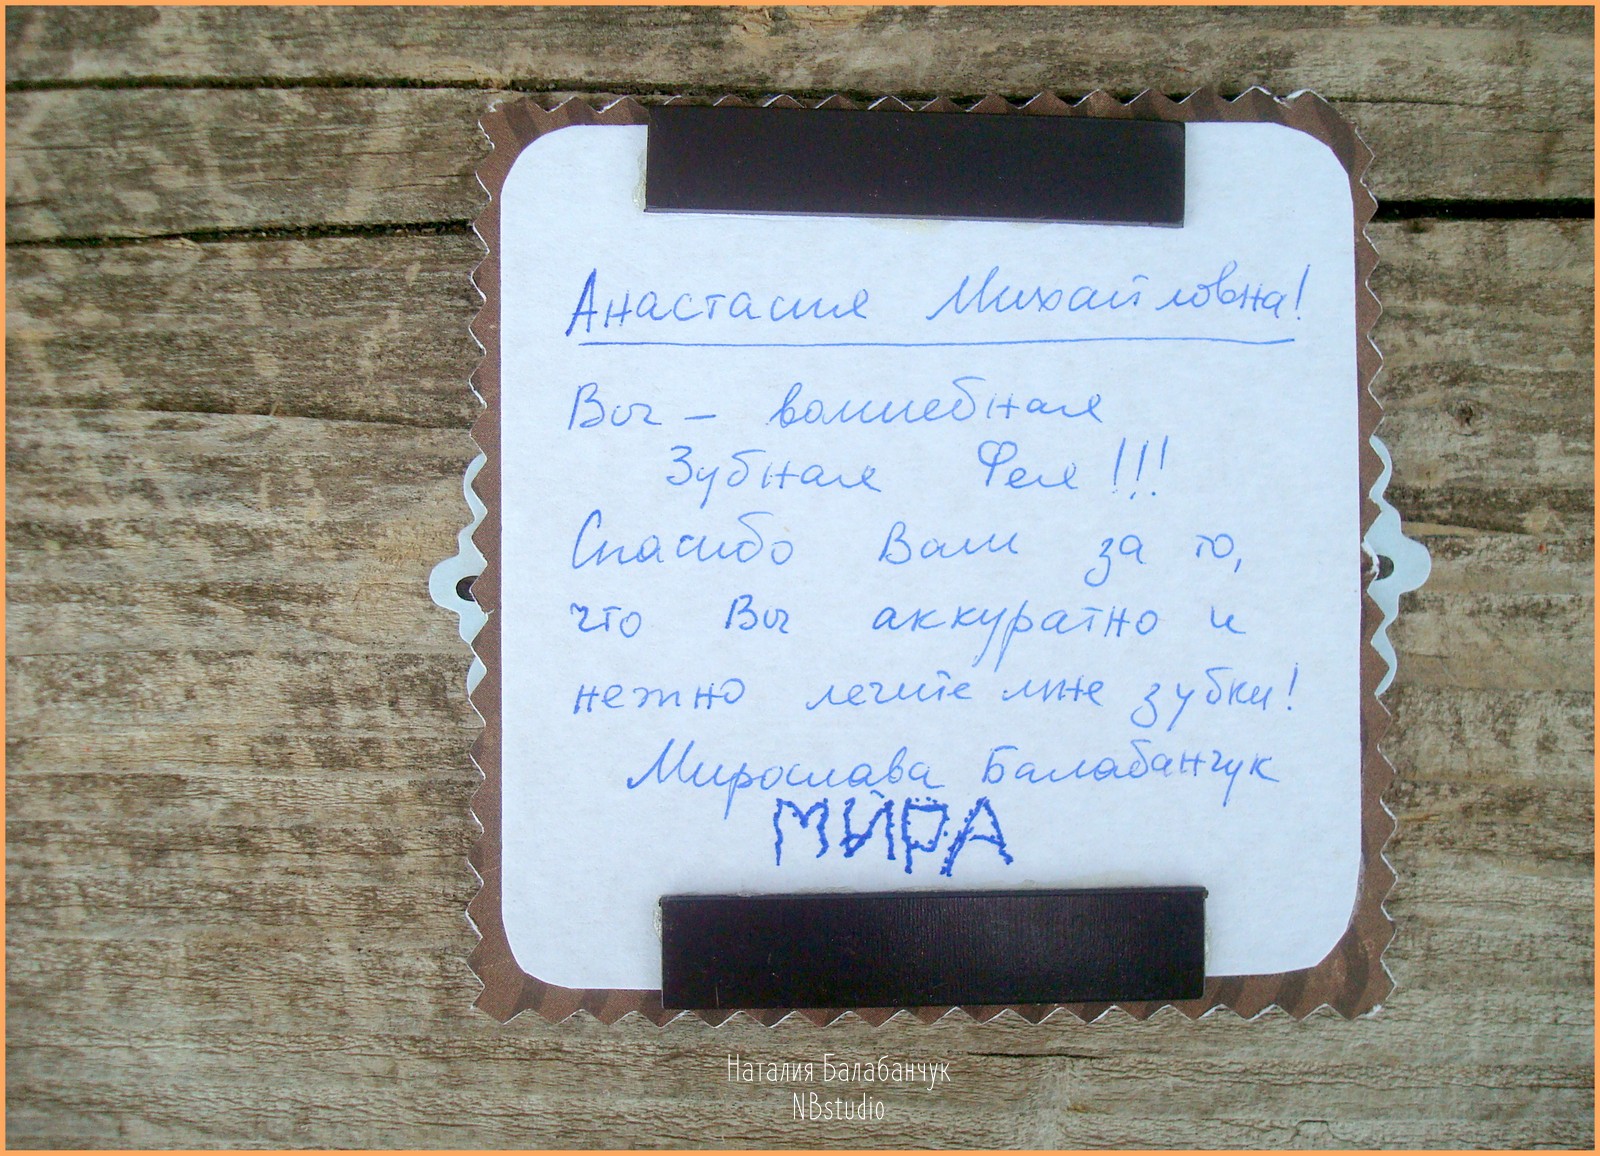 Анастасия Михайловна!
Вы - волшебная
Зубная Фея!!!
Спасибо Вам за то,
что Вы аккуратно и
нежно лечите мне зубки!
Мирослава Балабанчук
МИРА
Наталия Балабанчук
NBstudio